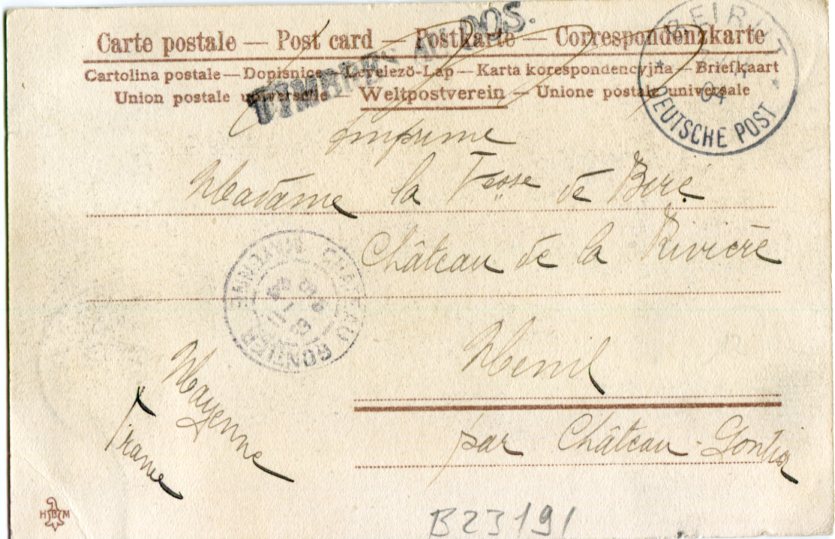 Carte postale — Post card — Postkarte — Correspondenzkarte
Cartolina postale — Dopisnice — Levelező-Lap — Karta korespondencyjna — Briefkaart
Union postale universelle — Weltpostverein — Unione postale universale
TIMBRES AU DOS.
BEIRUT
04
DEUTSCHE POST
Imprimé
Madame la Vtesse de Beré
Château de la Rivière
CHATEAU GONTIER
MAYENNE
Menil
par Château-Gontier
Mayenne
France
HBM
B23191